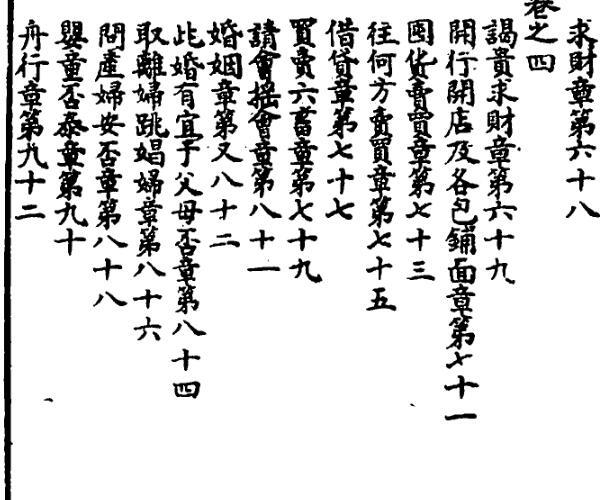 求財章第六十八
卷之四
謁貴求財章第六十九
開行開店及各色鋪面章第七十一
囤貨賣買章第七十三
往何方賣買章第七十五
借貸章第七十七
買賣六畜章第七十九
請會搖會章第八十一
婚姻章第又八十二
此婚有宜于父母否章第八十四
取離婦跳娼婦章第八十六
問產婦安否章第八十八
嬰童否泰章第九十
舟行章第九十二